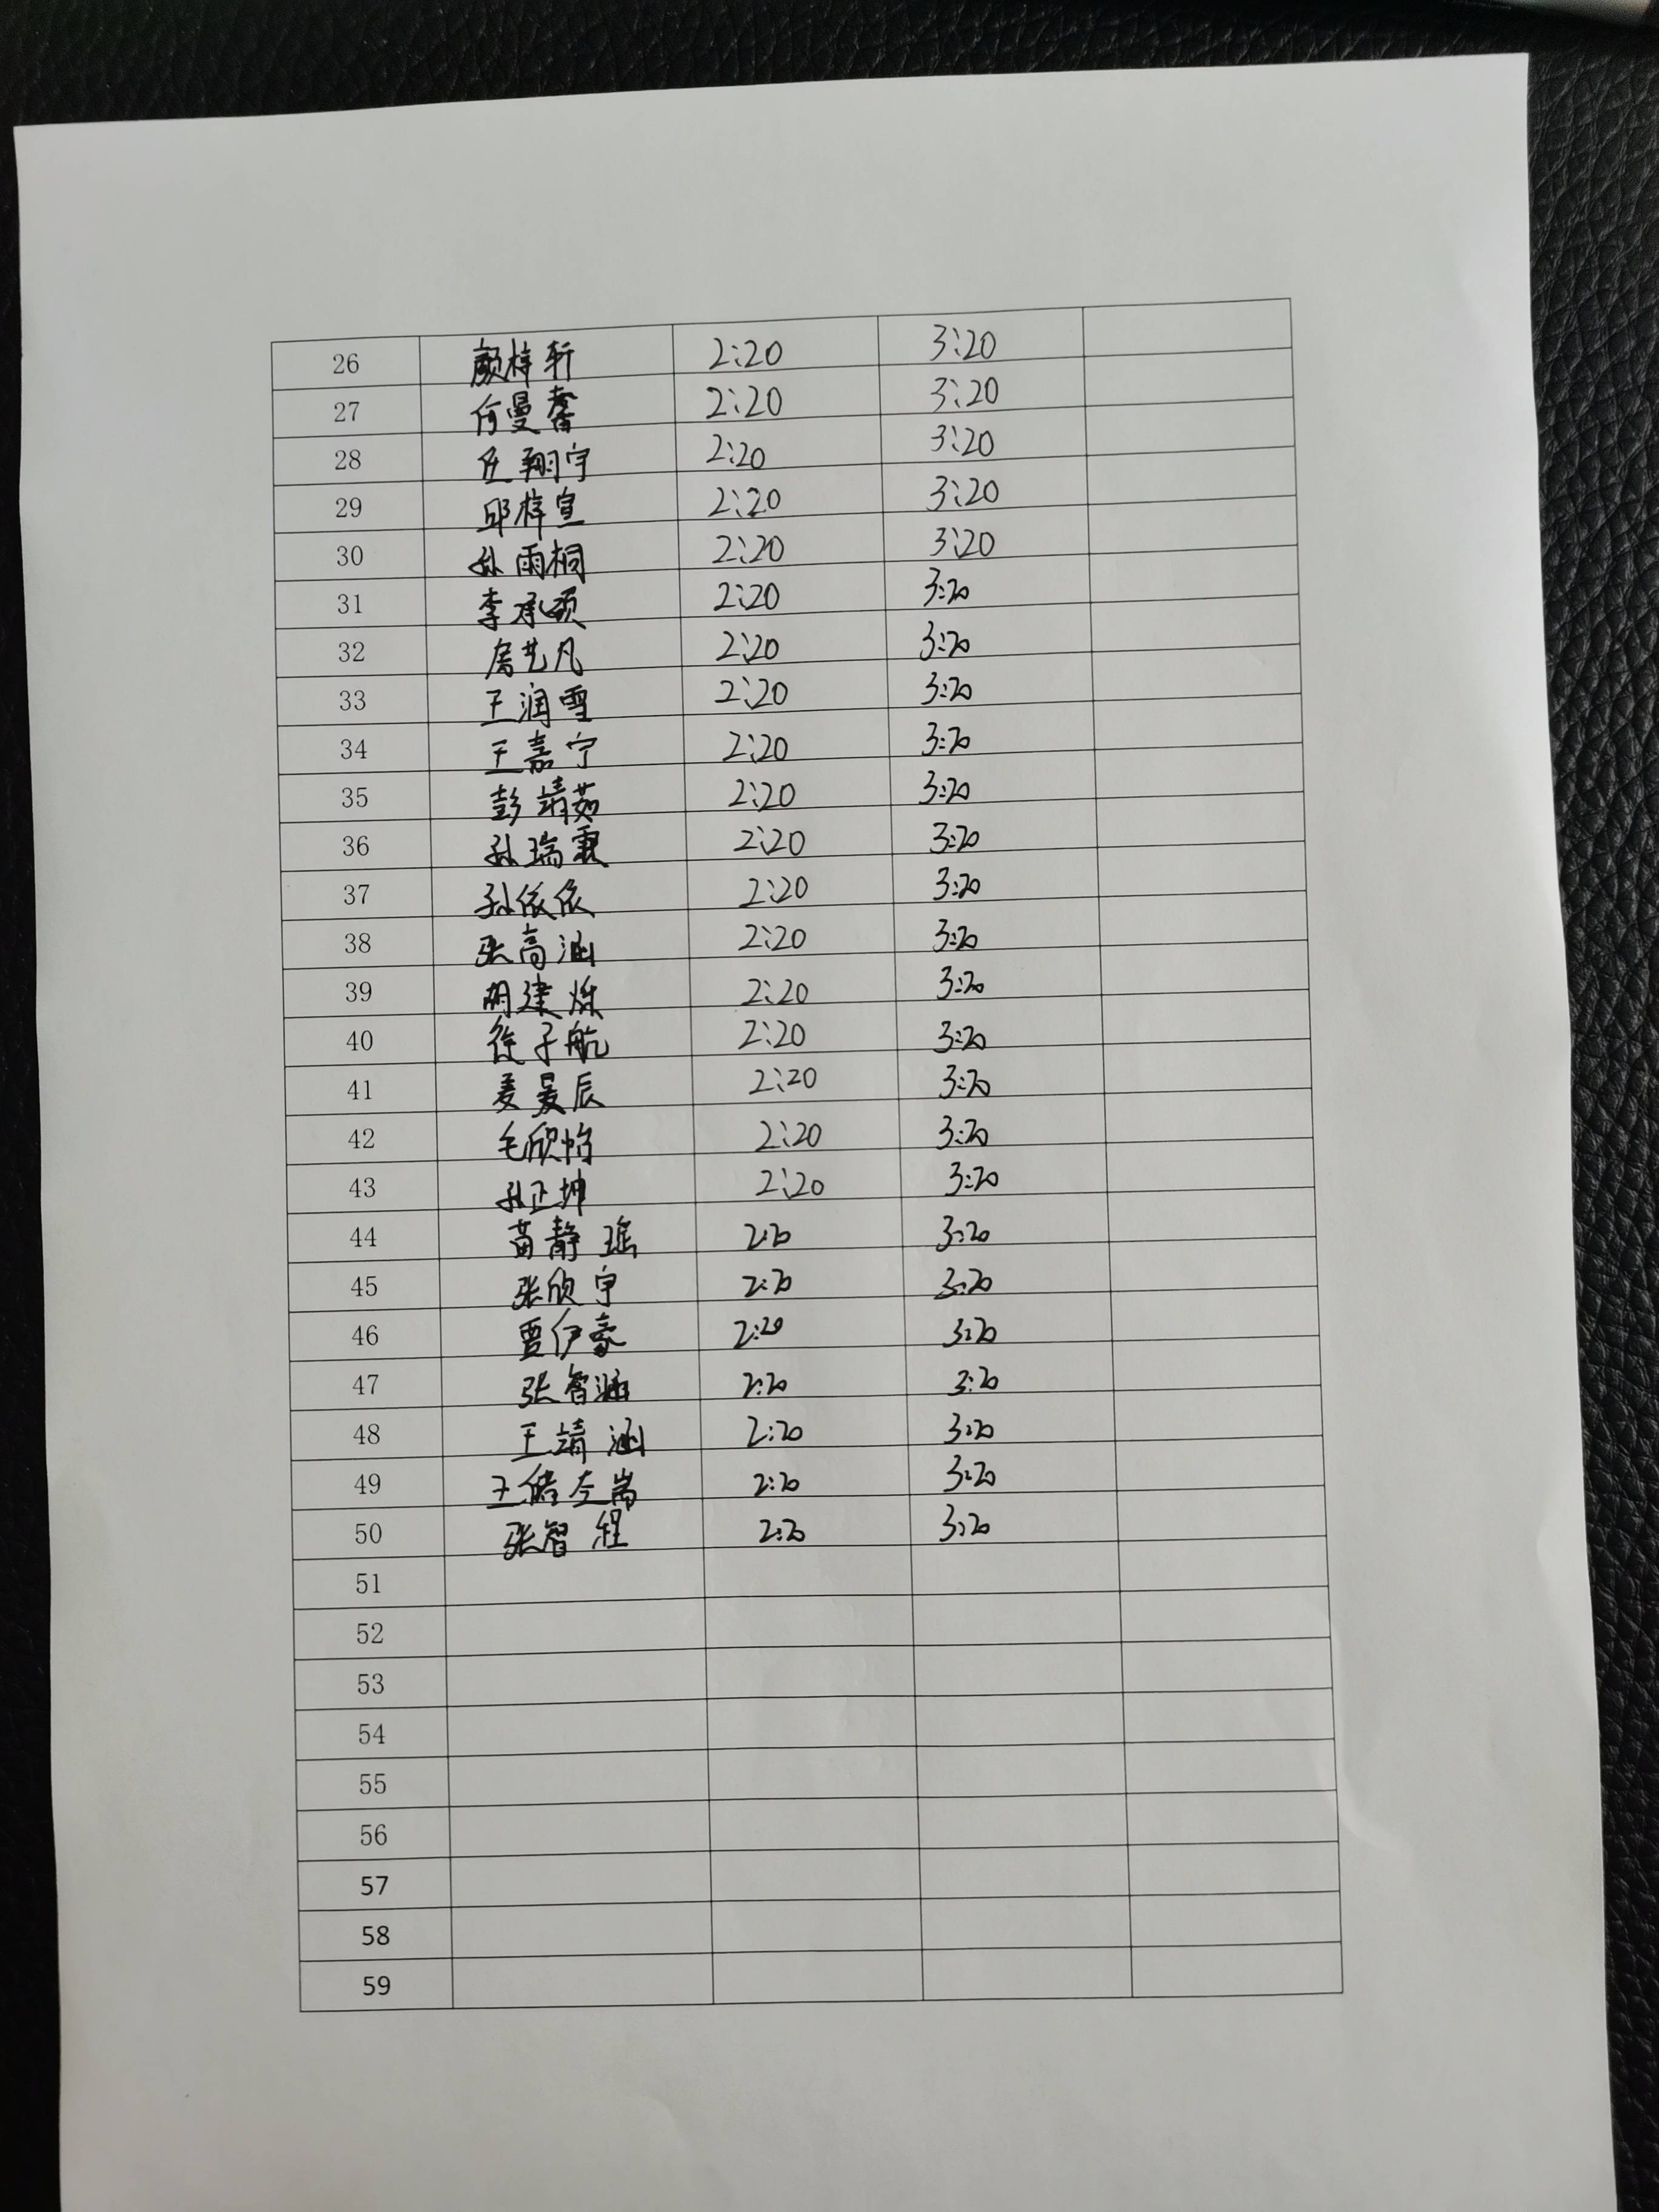 26 颜梓轩 2:20 3:20
27 何曼馨 2:20 3:20
28 任翔宇 2:20 3:20
29 邱梓宣 2:20 3:20
30 孙雨桐 2:20 3:20
31 李承硕 2:20 3:20
32 房艺凡 2:20 3:20
33 王润雪 2:20 3:20
34 王嘉宁 2:20 3:20
35 彭靖茹 2:20 3:20
36 孙瑞霖 2:20 3:20
37 孙依依 2:20 3:20
38 张高涵 2:20 3:20
39 胡建烁 2:20 3:20
40 徐子航 2:20 3:20
41 2:20 3:20
42 毛欣怡 2:20 3:20
43 孔正坤 2:20 3:20
44 苗静瑶 2:20 3:20
45 张欣宇 2:20 3:20
46 贾伊豪 2:20 3:20
47 张智涵 2:20 3:20
48 王靖涵 2:20 3:20
49 2:20 3:20
50 张智程 2:20 3:20
51
52
53
54
55
56
57
58
59